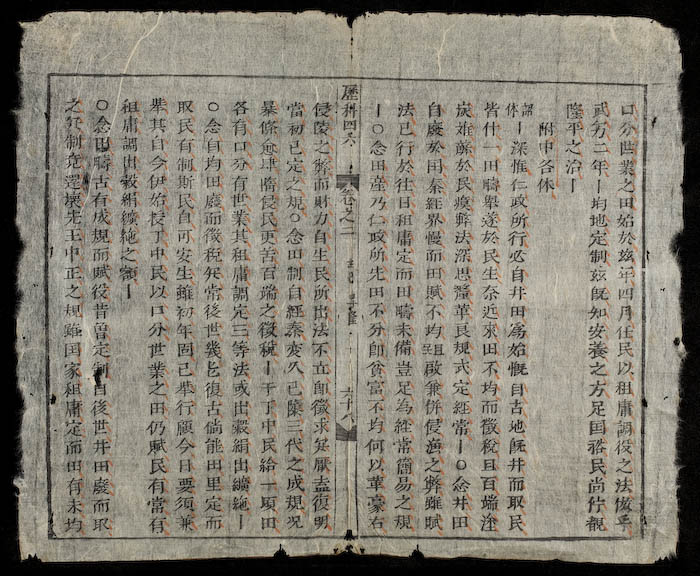 口分世業之田始於玆年四月任民以租庸調役之法倣
武方二年丨均地定制玆旣知安養之方足国裕民尚佇観
隆平之治丨
附中各休
謂休丨深惟仁政所行必自井田爲始慨自古地旣井而取民
皆什一田疇舉遂於民生奈近來田不均而徵稅且百端塗
炭难蘇於民瘼弊法深思釐革良規式定經常丨〇念井田
自廢於田秦經界慢而田賦不均阻啟兼併侵漁之弊雖賦
法已行於往日租庸定而田疇未備豈足為經常簡易之規
丨〇念田産乃仁政所先田不分卽貧富不均何以革豪右
歷科四六
卷之二
六十八
侵陵之弊而財力自生民所出法不立卽徵求無厭盍復明
當初已定之規〇念田制自經秦変久已隳三代之成規况
暴條愈肆隋侵民更苦百端之徵稅丨于丁中民給一頃田
各有口分有世業其租庸調定三等法或出穀絹出纊絁丨
〇念自均田廢而徵稅無常後世幾復古倘能田里定而
取民有制斯民自可安生雖初年固已舉行顧今日要須兼
举其自今伊始授丁中民以口分世業之田仍賦民有常有
租庸調出穀絹纊絁之額丨
〇念田疇古有成規而賦役昔曽定制自後世井田廢而取
之無制竟還壞先王中正之規雖国家租庸定而田有未均